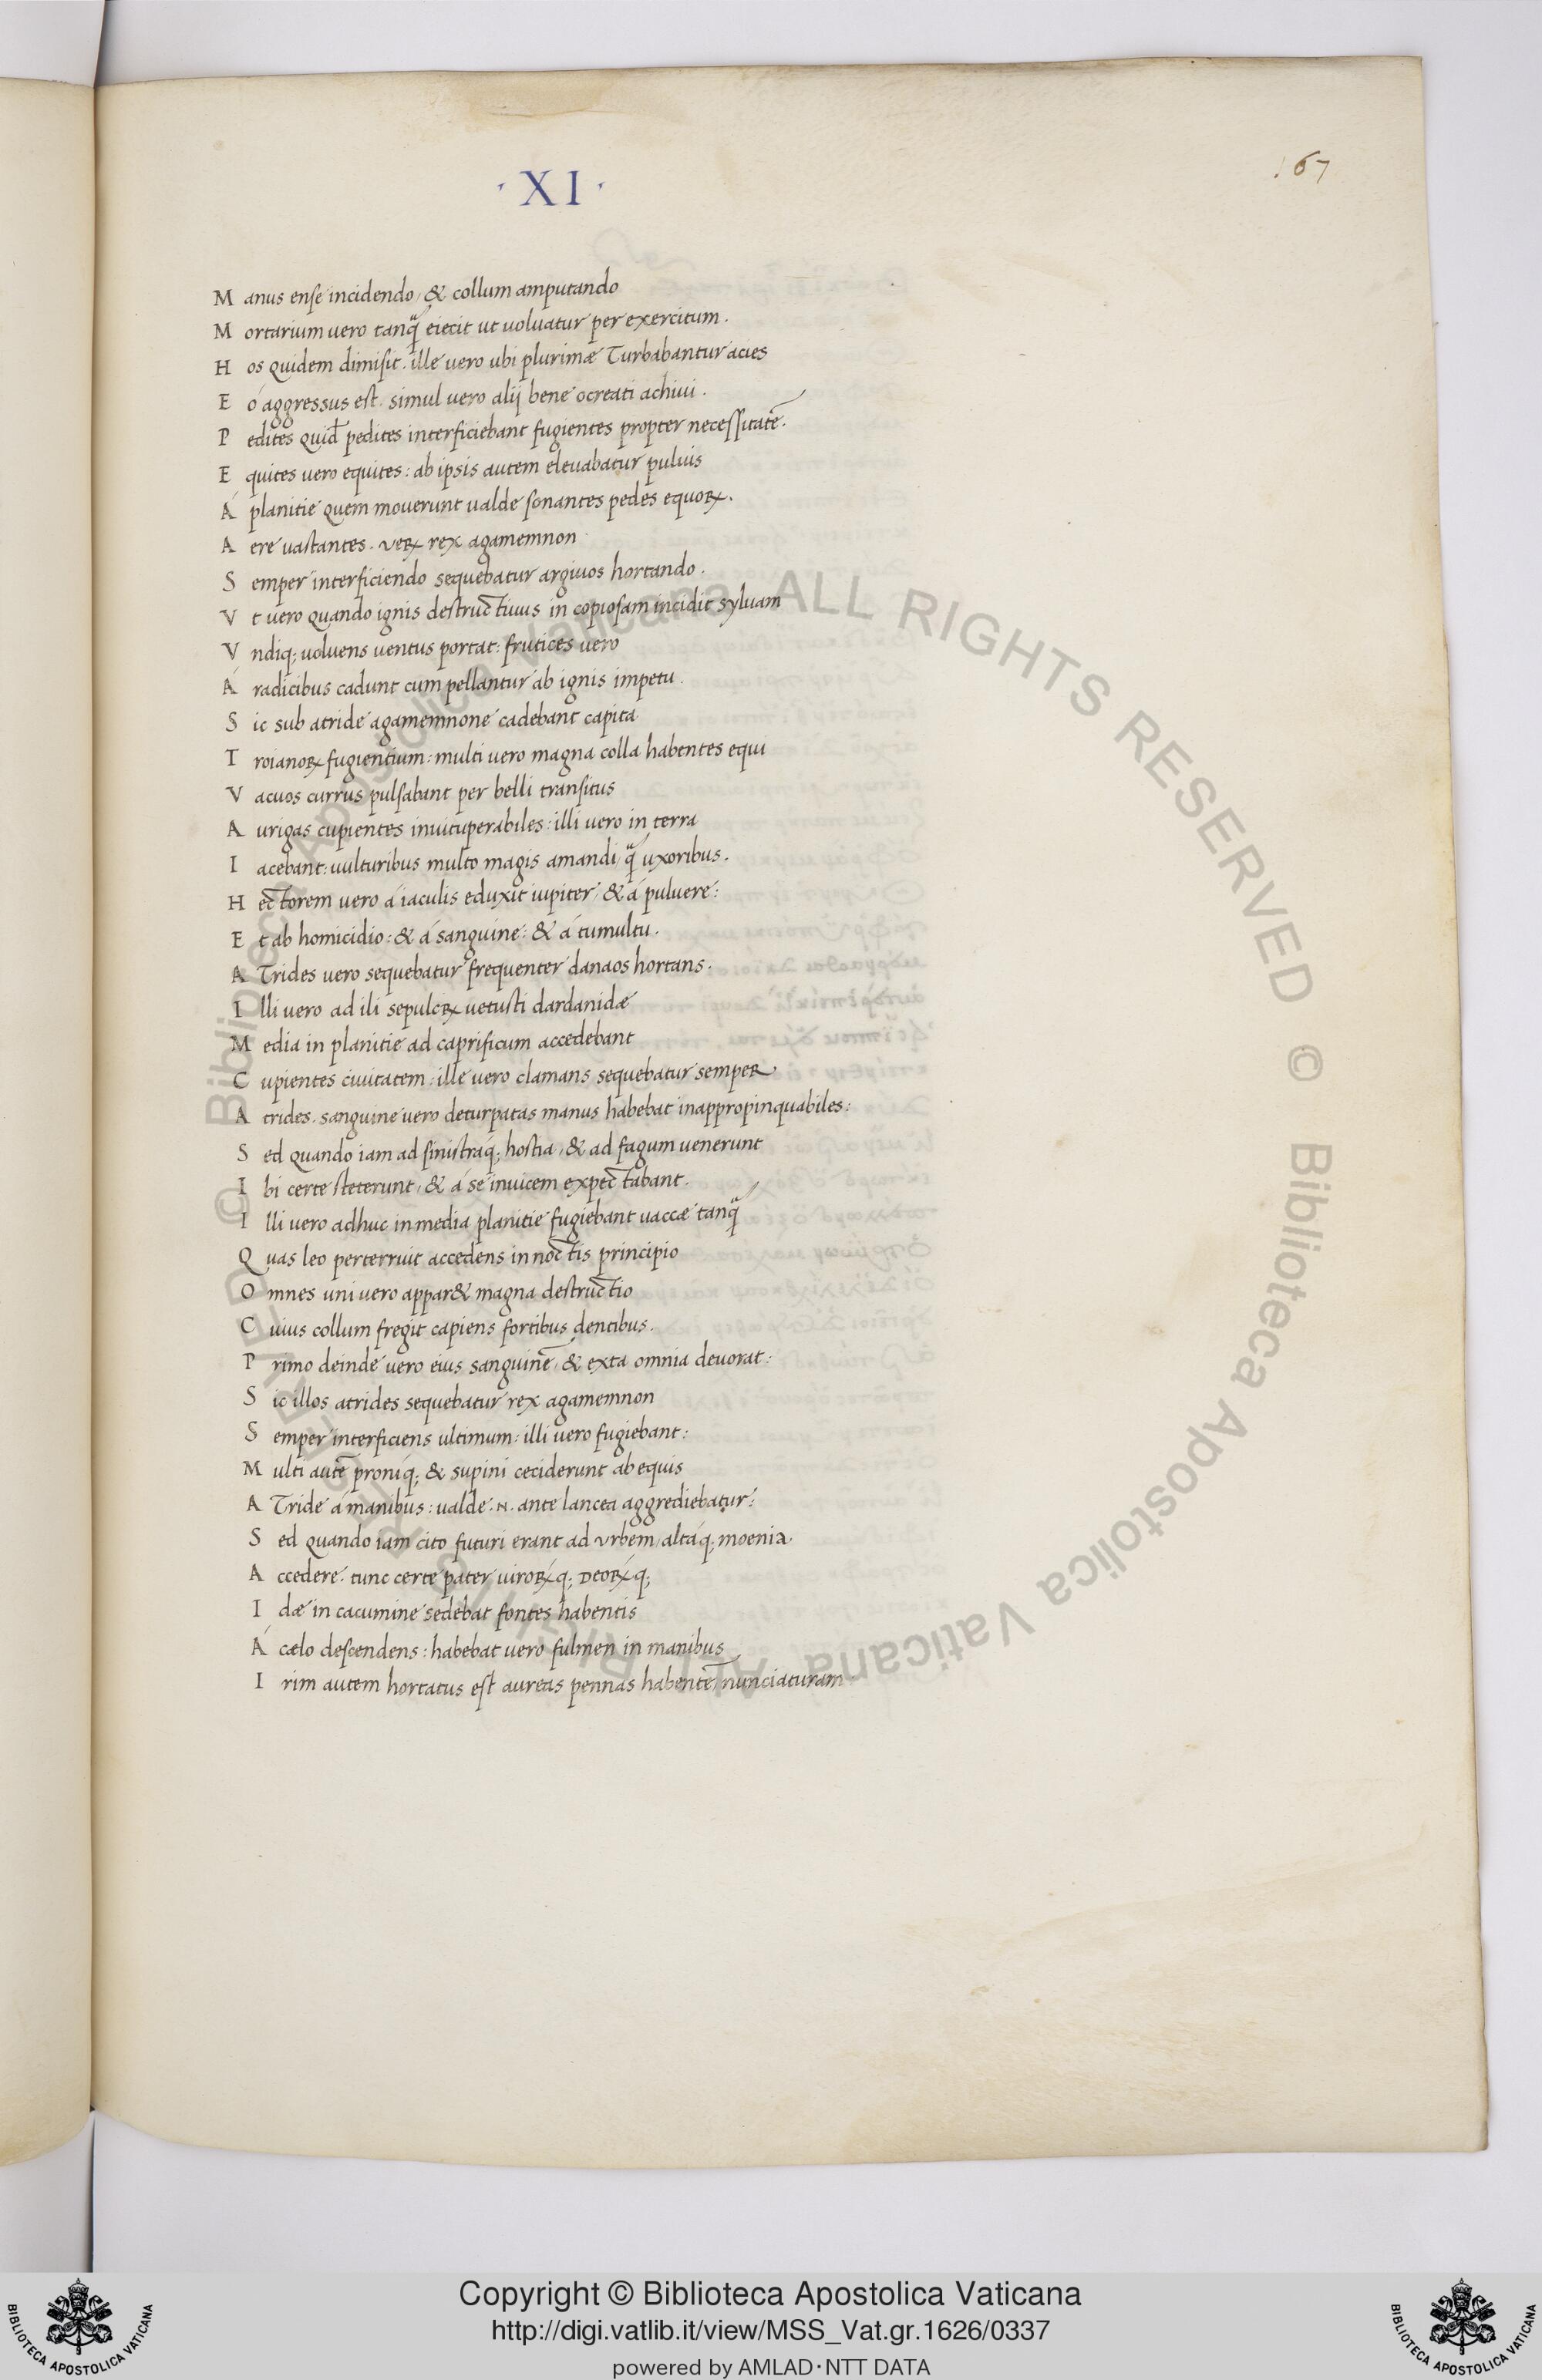 · XI ·
167
Manus ense incidendo / & collum amputando
Mortarium vero tanq̃ eiecit ut uoluatur per exercitum.
Hos quidem dimisit. ille vero ubi plurimæ Turbabantur acies
Eó aggressus est. simul vero alij bene ocreati achiui.
Pedites quid̃ pedites interficiebant fugientes propter necessitatẽ.
Equites vero equites: ab ipsis autem eleuabatur puluis
Á planitie quem mouerunt ualde sonantes pedes equoꝝ.
Aere uastantes. veꝝ rex agamemnon
Semper interficiendo sequebatur argiuos hortando.
Vt vero quando ignis destructiuus in copiosam incidit syluam
Vndiq; uoluens uentus portat: frutices uero
Á radicibus cadunt cum pellantur ab ignis impetu.
Sic sub atride agamemnone cadebant capita
Troianoꝝ fugientium: multi uero magna colla habentes equi
Vacuos currus pulsabant per belli transitus
Aurigas cupientes inuituperabiles: illi uero in terra
Iacebant: uulturibus multo magis amandi / q̃ uxoribus.
Hectorem uero á iaculis eduxit iupiter / & á puluere:
Et ab homicidio: & á sanguine: & á tumultu.
ATrides vero sequebatur frequenter danaos hortans.
Illi vero ad ili sepulcꝝ uetusti dardanidæ
Media in planitie ad caprificum accedebant
Cupientes ciuitatem: ille vero clamans sequebatur semper
Atrides. sanguine vero deturpatas manus habebat inappropinquabiles:
Sed quando iam ad sinistraq́; hostia / & ad fagum uenerunt
Ibi certe steterunt / & á se inuicem expectabant.
Illi vero adhuc in media planitie fugiebant uaccæ tanq̃
Quas leo perterruit accedens in noctis principio
Omnes uni vero appar& magna destructio
Cuius collum fregit capiens fortibus dentibus.
Primo deinde vero eius sanguinẽ / & exta omnia deuorat:
Sic illos atrides sequebatur rex agamemnon
Semper interficiens ultimum: illi vero fugiebant:
Multi autẽ proniq́; & supini ceciderunt ab equis
ATride á manibus: ualde .N. ante lancea aggrediebatur:
Sed quando iam cito futuri erant ad vrbem / altaq́; moenia
Accedere. tunc certe pater uiroꝝq́; deoꝝq́;
Idæ in cacumine sedebat fontes habentis
Á cælo descendens: habebat vero fulmen in manibus
Irim autem hortatus est aureas pennas habentẽ / nunciaturam
© Biblioteca Apostolica Vaticana ALL RIGHTS RESERVED © Biblioteca Apostolica Vaticana ALL RIGHTS RESERVED
Copyright © Biblioteca Apostolica Vaticana
http://digi.vatlib.it/view/MSS_Vat.gr.1626/0337
powered by AMLAD·NTT DATA
BIBLIOTECA APOSTOLICA VATICANA
BIBLIOTECA APOSTOLICA VATICANA